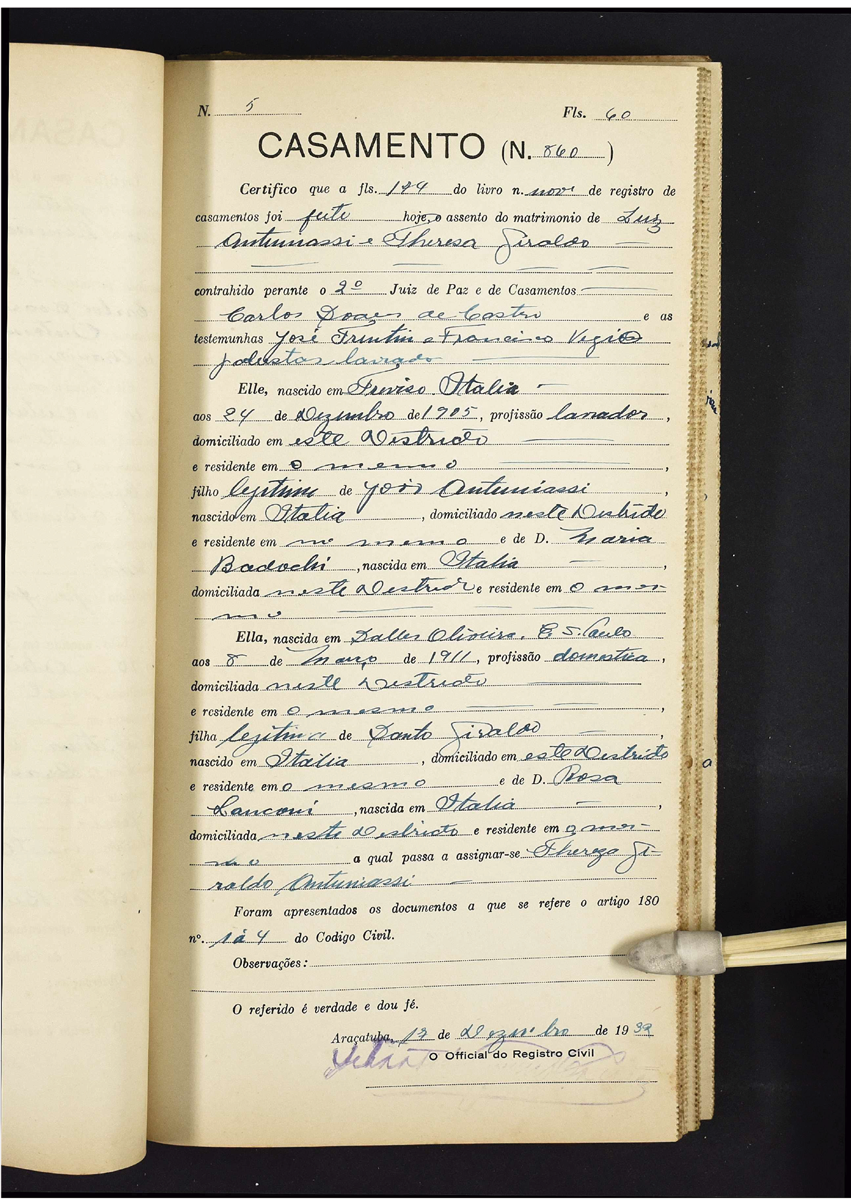 N. 5 Fls. 60
CASAMENTO (N. 860)
Certifico que a fls. 179 do livro n. nove de registro de
casamentos foi feito hoje, o assento do matrimonio de Luiz
Antuniassi e Theresa Giraldo
contrahido perante o 2º Juiz de Paz e de Casamentos
Carlos Soares de Castro e as
testemunhas José Frintin e Francisco Vegio
Elle, nascido em Treviso Italia
aos 24 de Dezembro de 1905, profissão lavrador,
domiciliado em este Destricto
e residente em o mesmo,
filho legitimo de João Antuniassi,
nascido em Italia, domiciliado neste Destricto
e residente em no mesmo e de D. Maria
Badochi, nascida em Italia,
domiciliada neste Destricto e residente em o mes-
mo
Ella, nascida em Dalles Oliveira, E. S. Paulo
aos 8 de Março de 1911, profissão domestica,
domiciliada neste Destricto
e residente em o mesmo,
filha legitima de Santo Giraldo,
nascido em Italia, domiciliado em este Destricto
e residente em o mesmo e de D. Rosa
Lanconi, nascida em Italia,
domiciliada neste Destricto e residente em o mes-
mo a qual passa a assignar-se Thereza Gi-
raldo Antuniassi
Foram apresentados os documentos a que se refere o artigo 180
nº. 1 à 4 do Codigo Civil.
Observações:
O referido é verdade e dou fé.
Araçatuba, 12 de Dezembro de 1932
O Official do Registro Civil